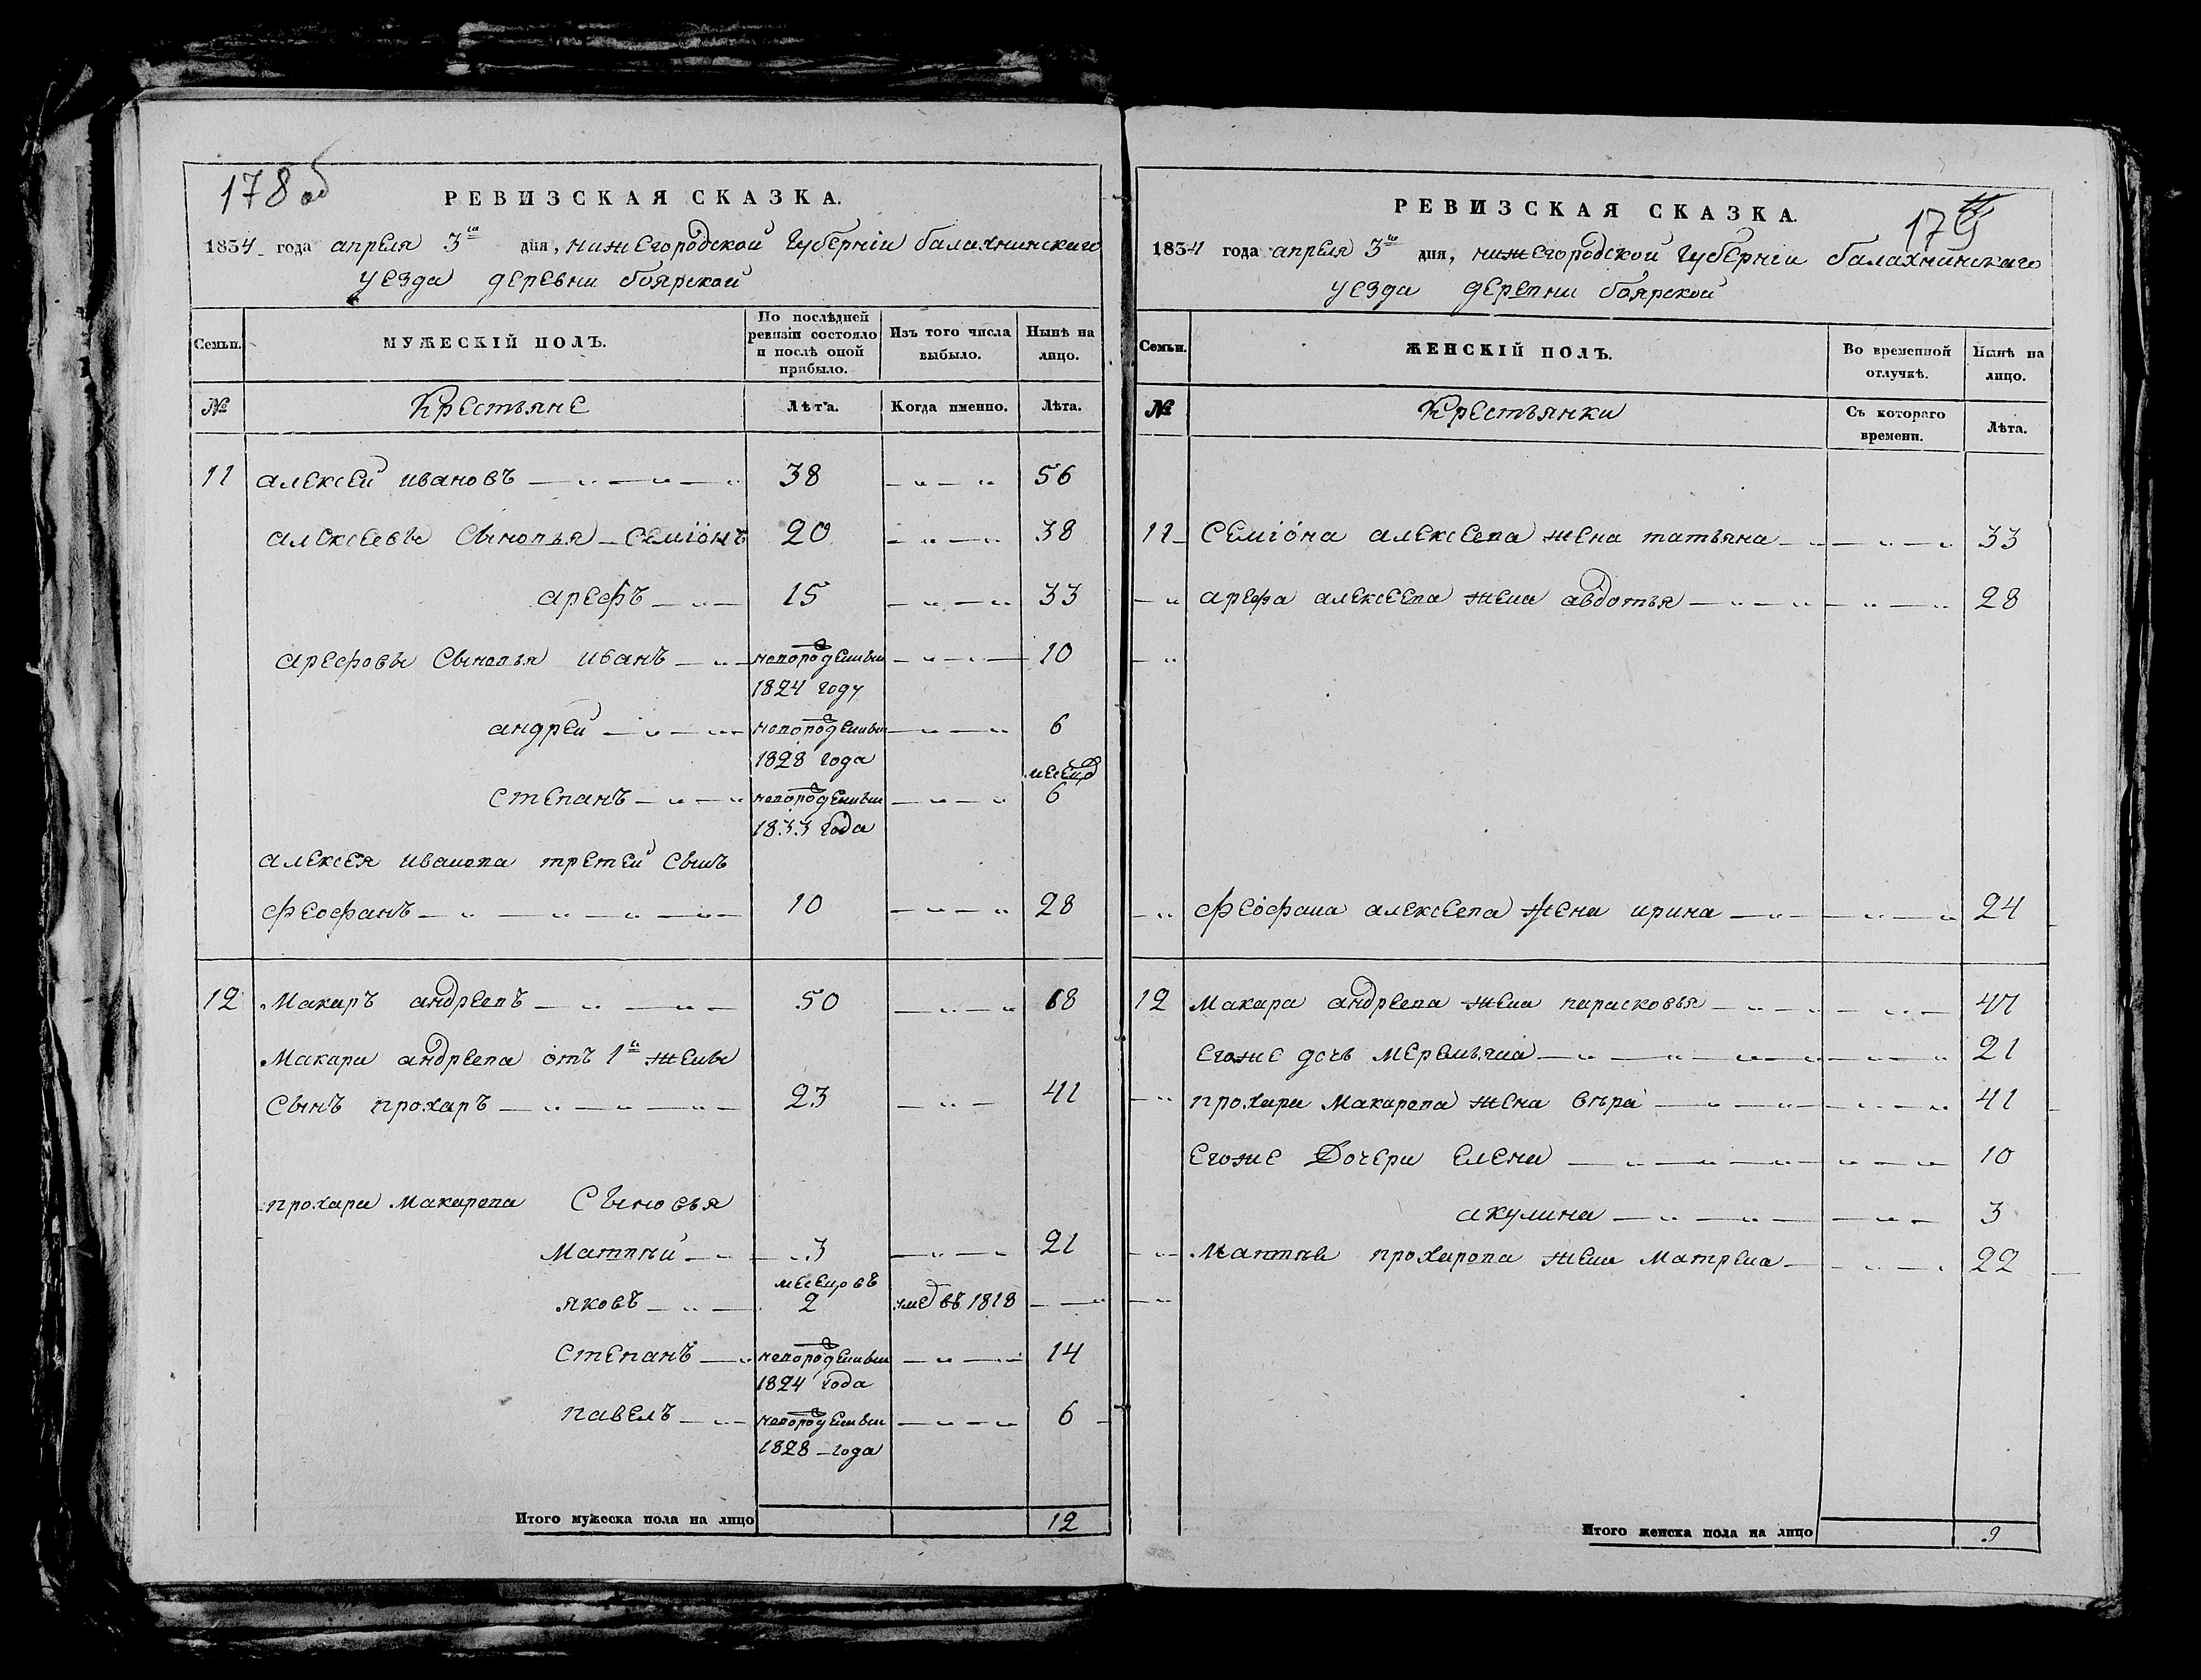 178 об
РЕВИЗСКАЯ СКАЗКА.
1834 года апреля 3го дня, нижегородской губерніи балахнинскаго
уезда деревни боярской
Семьи. МУЖЕСКІЙ ПОЛЪ. По послѣдней ревизіи состояло и послѣ оной прибыло. Изъ того числа выбыло. Нынѣ на лицо.
№ Крестьяне Лѣта. Когда именно. Лѣта.
11 алексей ивановъ 38 56
алексеевы сыновья семіонъ 20 38
арефъ 15 33
арефовы сыновья иванъ новорожденный 10
1824 году
андрей новорожденный 6
1828 года
месецов
степанъ новорожденный 6
1833 года
алексея иванова третей сынъ
феофанъ 10 28
12 Макаръ андреевъ 50 68
Макара андреева отъ 1й жены
сынъ прохаръ 23 41
прохара Макарова сыновья
Матвѣй 3 21
месецовъ
яковъ 2 умре въ 1818
степанъ новорожденный 14
1824 года
павелъ новорожденный 6
1828 года
Итого мужеска пола на лицо 12
179
РЕВИЗСКАЯ СКАЗКА.
1834 года апреля 3го дня, нижегородской губерніи балахнинскаго
уезда деревни боярской
Семьи. ЖЕНСКІЙ ПОЛЪ. Во временной отлучкѣ. Нынѣ на лицо.
№ Крестьянки Съ котораго времени. Лѣта.
11 Семіона алексеева жена татьяна 33
арефа алексеева жена авдотья 28
феофана алексеева жена ирина 24
12 Макара андреева жена парасковья 47
егоже дочь Меремьяна 21
прохара Макарова жена вѣра 41
егоже Дочери елена 10
акулина 3
Матвѣя прохарова жена Матрена 22
Итого женска пола на лицо 9